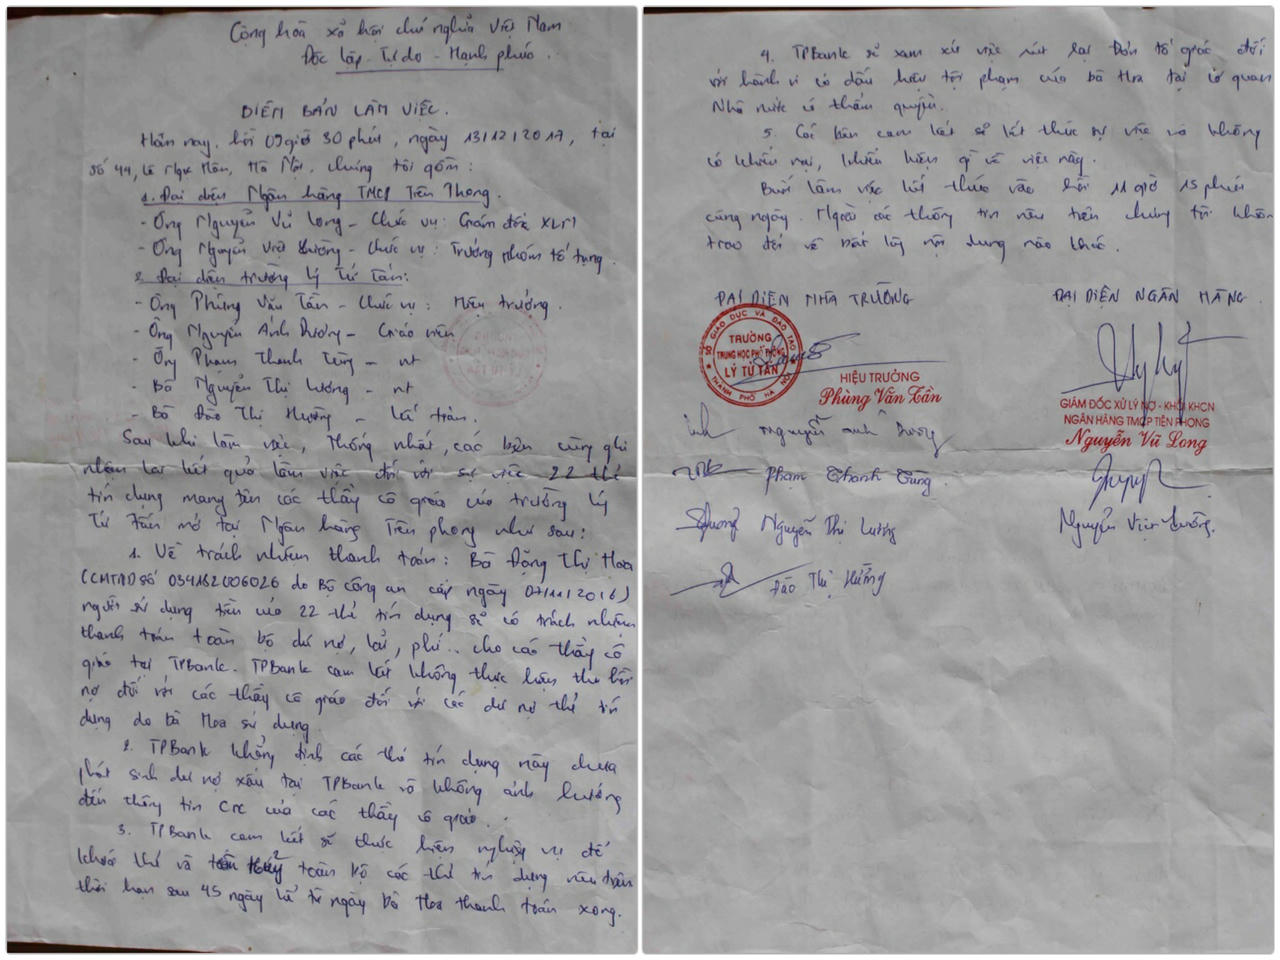 Cộng hòa xã hội chủ nghĩa Việt Nam
Độc lập - Tự do - Hạnh phúc.
BIÊN BẢN LÀM VIỆC.
Hôm nay, hồi 09 giờ 30 phút, ngày 13/12/2017, tại
Số 44, Lê Ngọc Hân, Hà Nội, chúng tôi gồm:
1. Đại diện Ngân hàng TMCP Tiên Phong.
- Ông Nguyễn Vũ Long - Chức vụ: Giám đốc XLN
- Ông Nguyễn Việt Cường - Chức vụ: Trưởng nhóm tố tụng.
2. Đại diện trường Lý Tự Tấn:
- Ông Phùng Văn Tấn - Chức vụ: Hiệu trưởng.
- Ông Nguyễn Ánh Dương - Giáo viên
- Ông Phạm Thanh Tùng - nt
- Bà Nguyễn Thị Lương - nt
- Bà Đào Thị Hường - Kế toán.
Sau khi làm việc, thống nhất, các bên cùng ghi
nhận lại kết quả làm việc đối với sự việc 22 thẻ
tín dụng mang tên các thầy cô giáo của trường Lý
Tự Tấn mở tại Ngân hàng Tiên phong như sau:
1. Về trách nhiệm thanh toán: Bà Đặng Thị Hoa
(CMTND số 034182006026 do Bộ công an cấp ngày 07/11/2016)
người sử dụng tiền của 22 thẻ tín dụng sẽ có trách nhiệm
thanh toán toàn bộ dư nợ, lãi, phí.. cho các thầy cô
giáo tại TPBank. TPBank cam kết không thực hiện thu hồi
nợ đối với các thầy cô giáo đối với các dư nợ thẻ tín
dụng do bà Hoa sử dụng
2. TPBank khẳng định các thẻ tín dụng này chưa
phát sinh dư nợ xấu tại TPBank và không ảnh hưởng
đến thông tin CIC của các thầy cô giáo.
3. TPBank cam kết sẽ thực hiện nghiệp vụ để
khóa thẻ và toàn bộ các thẻ tín dụng nêu trên
thời hạn sau 45 ngày kể từ ngày bà Hoa thanh toán xong.
4. TPBank sẽ xem xét việc rút lại Đơn tố giác đối
với hành vi có dấu hiệu tội phạm của bà Hoa tại cơ quan
Nhà nước có thẩm quyền.
5. Các bên cam kết sẽ kết thúc sự việc và không
có khiếu nại, khiếu kiện gì về việc này.
Buổi làm việc kết thúc vào hồi 11 giờ 15 phút
cùng ngày. Ngoài các thông tin nêu trên chúng tôi không
trao đổi về bất kỳ nội dung nào khác.
ĐẠI DIỆN NHÀ TRƯỜNG
ĐẠI DIỆN NGÂN HÀNG
SỞ GIÁO DỤC VÀ ĐÀO TẠO
TRƯỜNG
TRUNG HỌC PHỔ THÔNG
LÝ TỰ TẤN
THÀNH PHỐ HÀ NỘI
HIỆU TRƯỞNG
Phùng Văn Tấn
GIÁM ĐỐC XỬ LÝ NỢ - KHỐI KHCN
NGÂN HÀNG TMCP TIÊN PHONG
Nguyễn Vũ Long
Nguyễn Ánh Dương
Phạm Thanh Tùng
Nguyễn Thị Lương
Nguyễn Việt Cường.
Đào Thị Hường